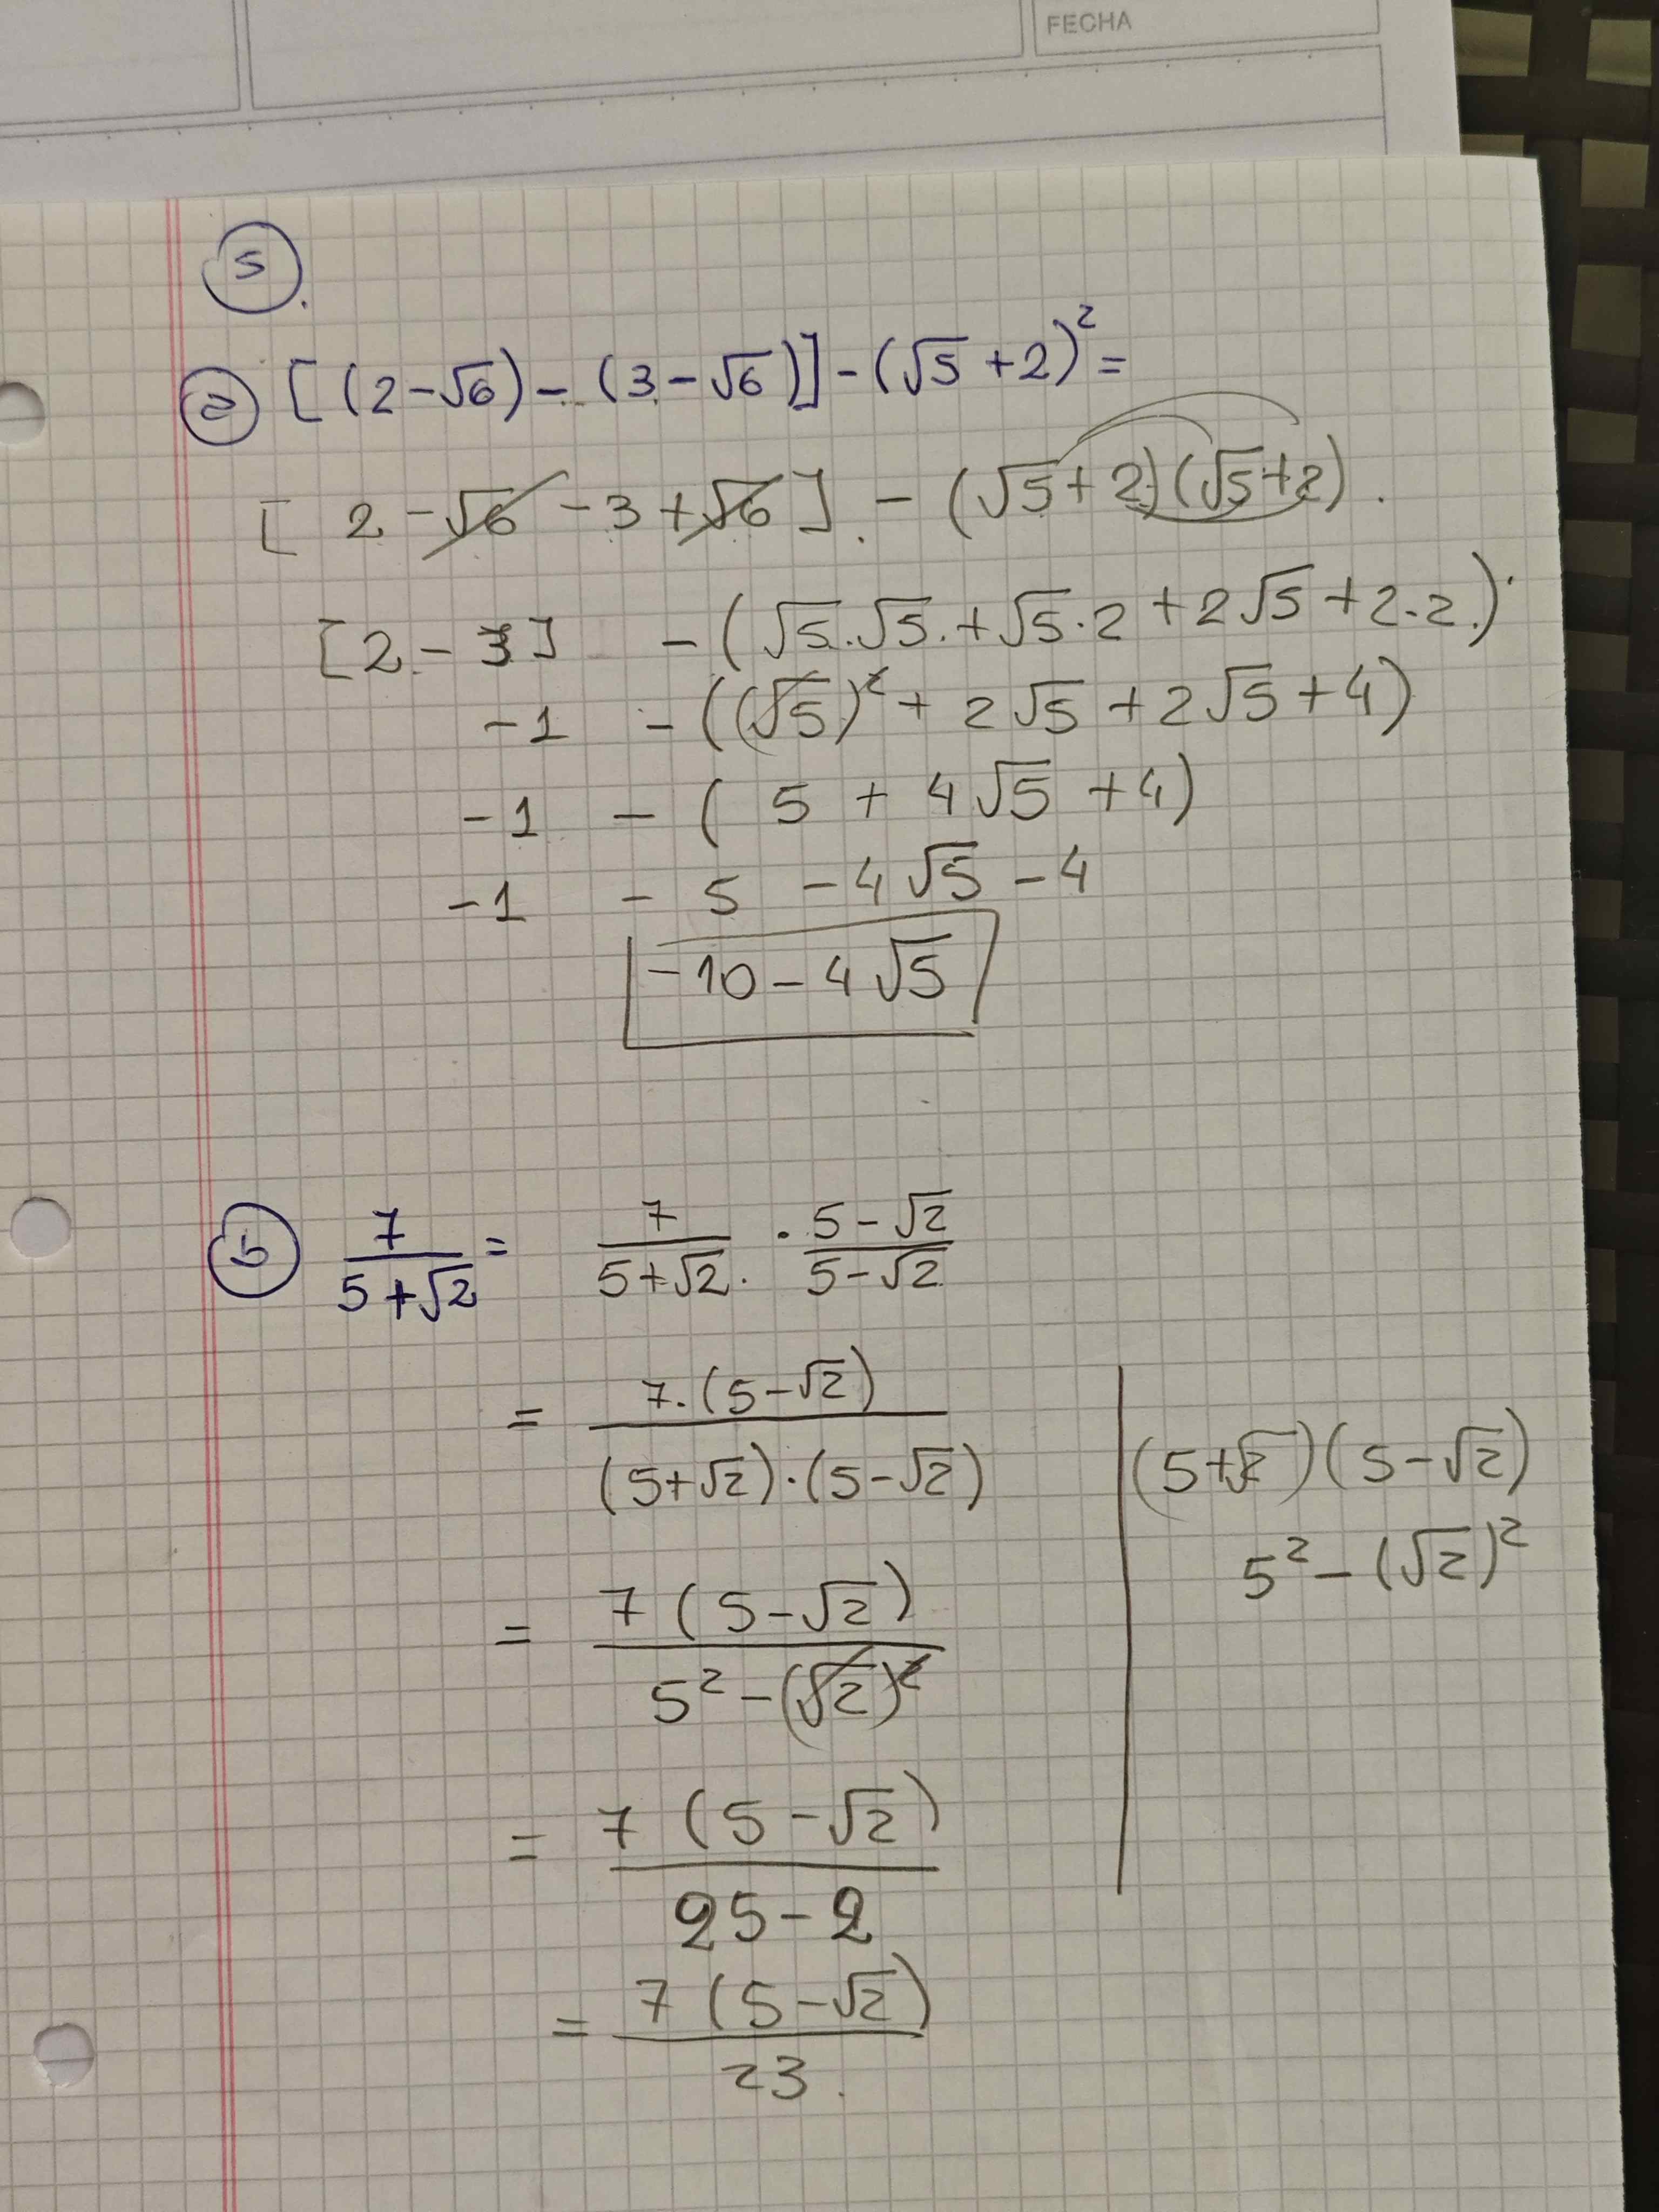 FECHA
5.
a [(2-√6)-(3-√6)]-(√5+2)²=
[2-√6-3+√6].-(√5+2)(√5+2).
[2-3] -(√5.√5.+√5.2+2√5+2.2.)
-1 -((√5)²+2√5+2√5+4)
-1 -(5+4√5+4)
-1 -5-4√5-4
-10-4√5
b 7/(5+√2) = 7/(5+√2) · (5-√2)/(5-√2)
= 7.(5-√2)/((5+√2)·(5-√2))
(5+√2)(5-√2)
5²-(√2)²
= 7(5-√2)/(5²-(√2)²)
= 7(5-√2)/(25-2)
= 7(5-√2)/23.